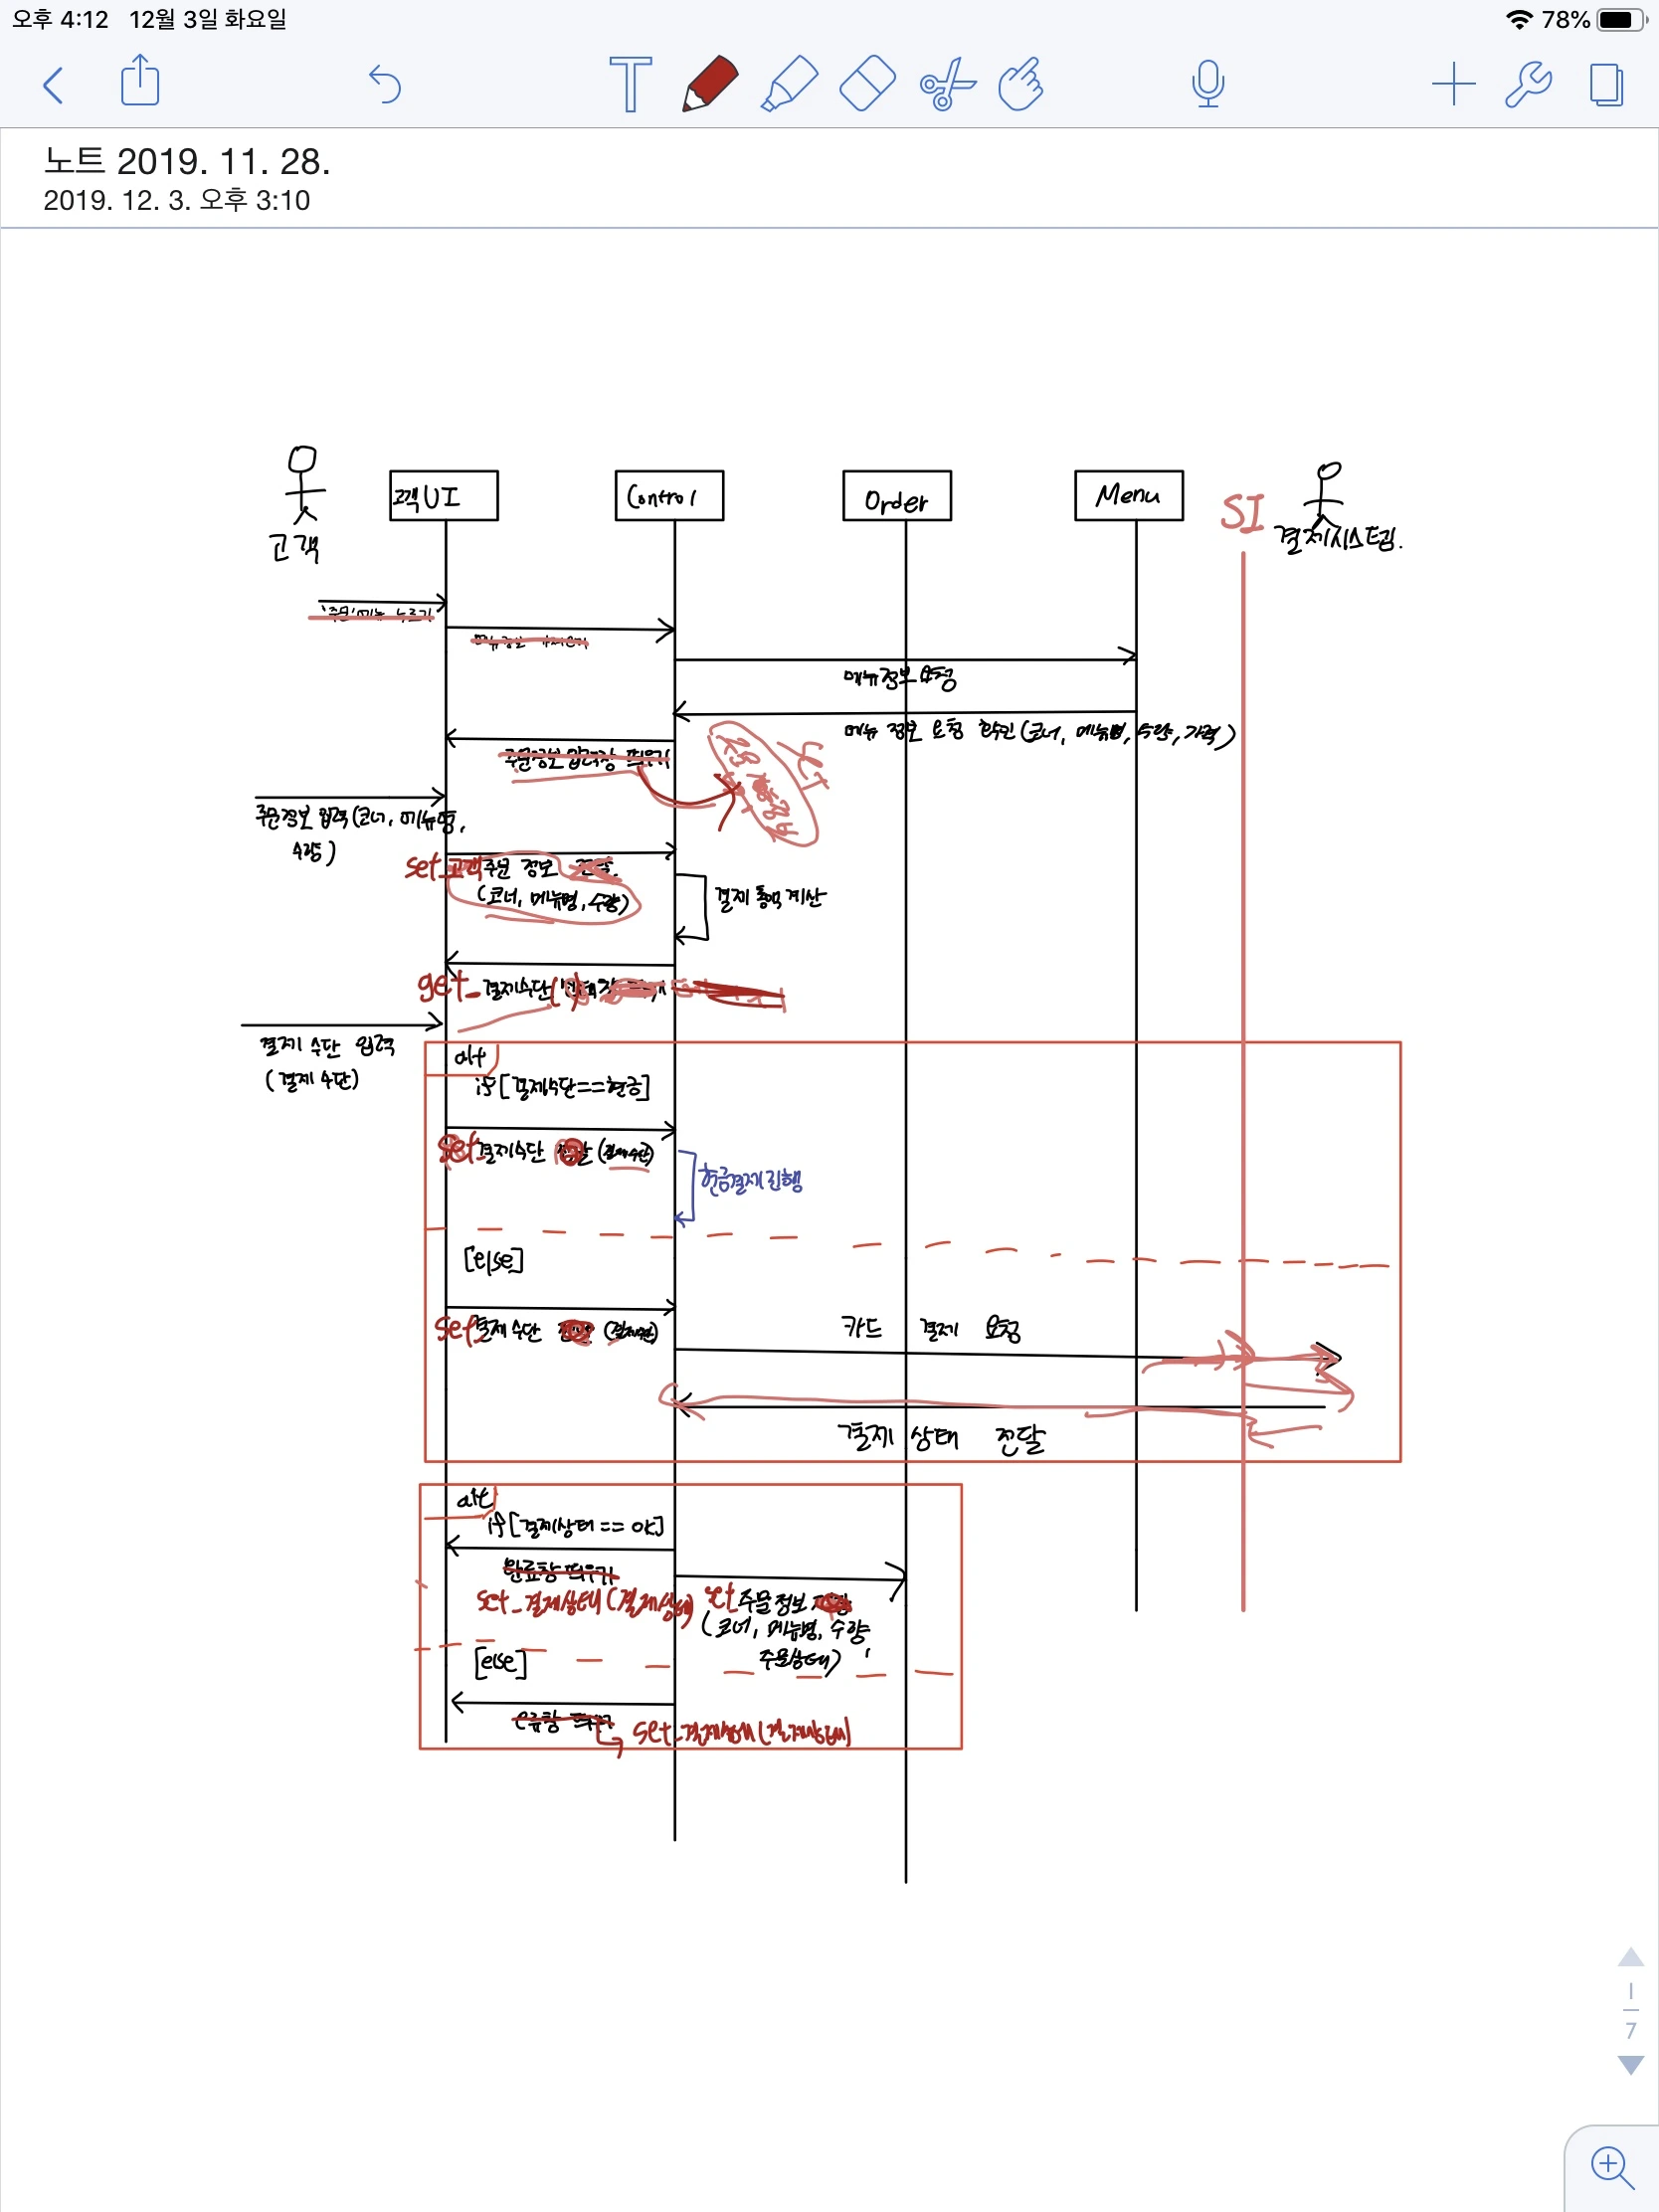 오후 4:12 12월 3일 화요일
78%
노트 2019. 11. 28.
2019. 12. 3. 오후 3:10
고객
고객 UI
Control
Order
Menu
SI
결제시스템.
메뉴정보 요청
메뉴 정보 요청 확인 (코너, 메뉴명, 수량, 가격)
주문정보 입력 (코너, 메뉴명,
수량)
set_고객주문 정보
(코너, 메뉴명, 수량)
결제 총액 계산
get_결제수단()
결제 수단 입력
(결제 수단)
alt
if [결제수단==현금]
set_결제수단 (결제수단)
현금결제 진행
[else]
set_결제수단 (결제수단)
카드 결제 요청
결제 상태 전달
alt
if [결제상태 == ok]
완료창 띄우기
set_결제상태 (결제상태)
set 주문 정보
(코너, 메뉴명, 수량,
주문상태)
[else]
오류창 띄우기
set_결제상태 (결제상태)
1
7